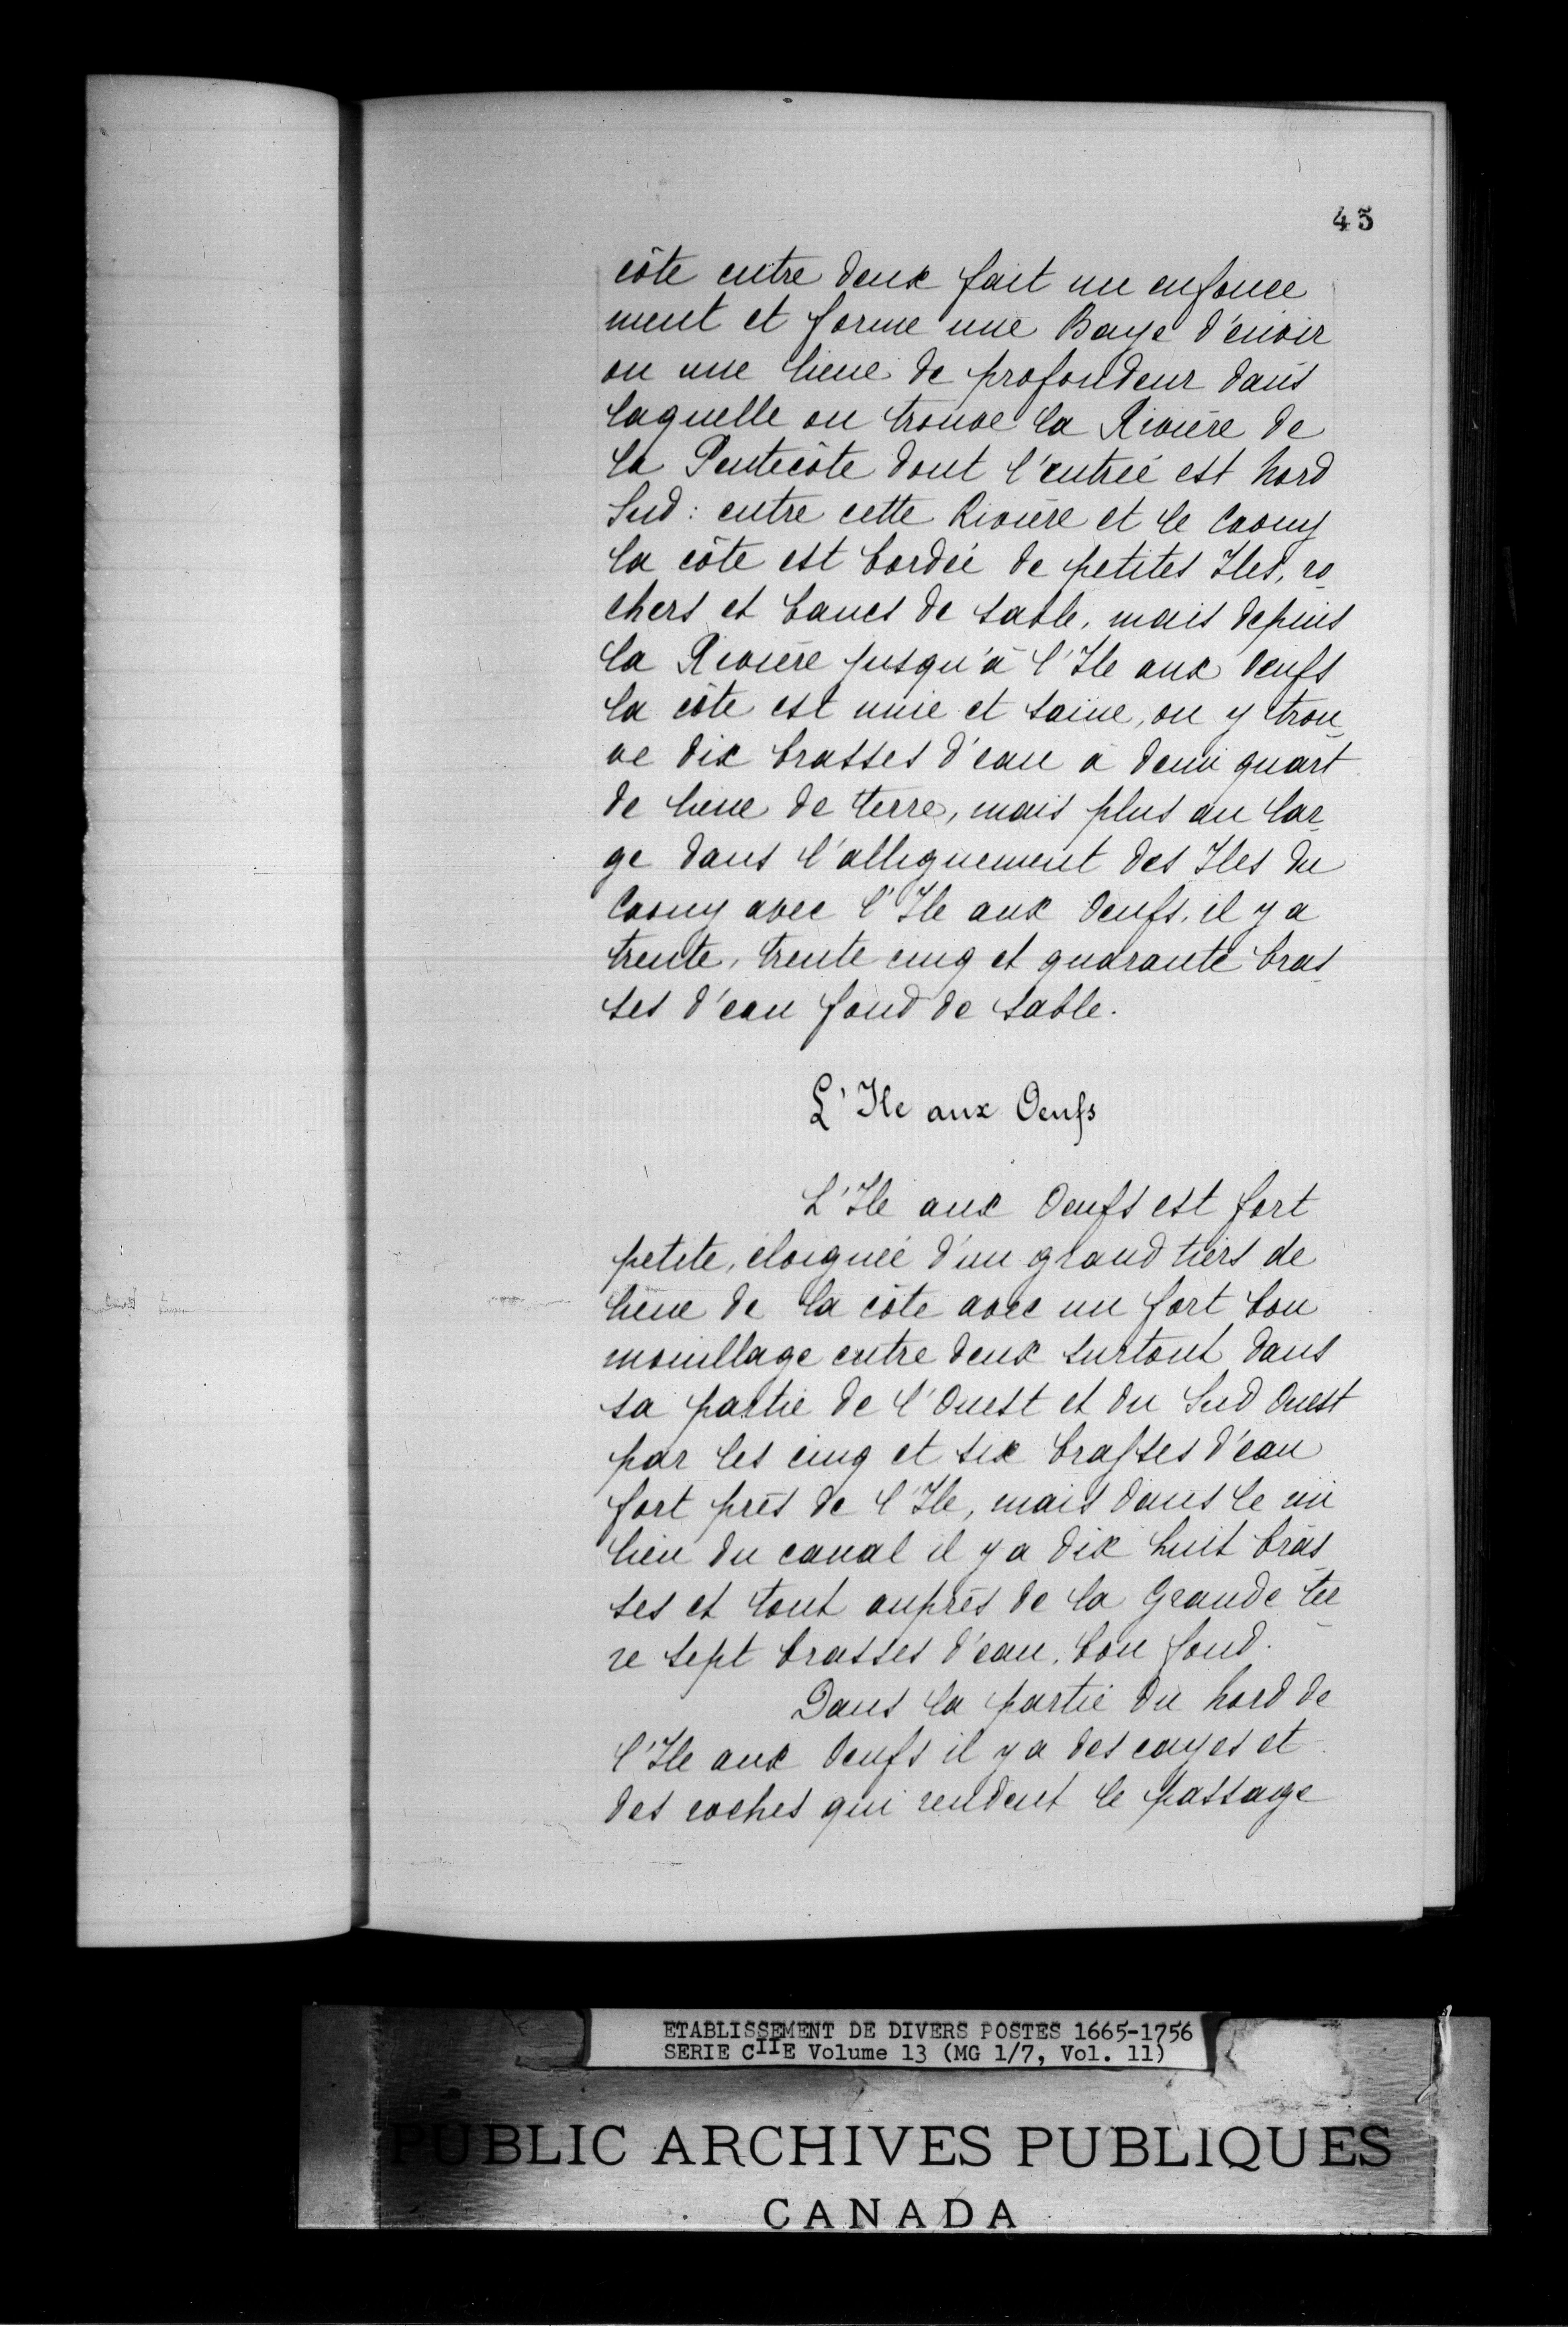 43
côte entre deux fait un enfonce
ment et forme une Baye d'envir
on une lieue de profondeur dans
laquelle on trouve la Rivière de
la Pentecôte dont l'entrée est nord
Sud: entre cette Rivière et le Caouy
la côte est bordée de petites Iles, ro
chers et bancs de sable, mais depuis
la Rivière jusqu'à l'Ile aux Oeufs
la côte est unie et saine, on y trou
ve dix brasses d'eau à demi quart
de lieue de terre, mais plus au lar
ge dans l'allignement des Iles du
Caouy avec l'Ile aux Oeufs, il y a
trente, trente cinq et quarante bras
ses d'eau fond de sable.
L'Ile aux Oeufs
L'Ile aux Oeufs est fort
petite, éloignée d'un grand tiers de
lieue de la côte avec un fort bon
mouillage entre deux surtout dans
sa partie de l'Ouest et du Sud Ouest
par les cinq et six brasses d'eau
fort près de l'Ile, mais dans le mi
lieu du canal il y a dix huit bras
ses et tout auprès de la Grande ter
re sept brasses d'eau, bon fond.
Dans la partie du nord de
l'Ile aux Oeufs il y a des cayes et
des roches qui rendent le passage
ETABLISSEMENT DE DIVERS POSTES 1665-1756
SERIE CIIE Volume 13 (MG 1/7, Vol. 11)
PUBLIC ARCHIVES PUBLIQUES
CANADA